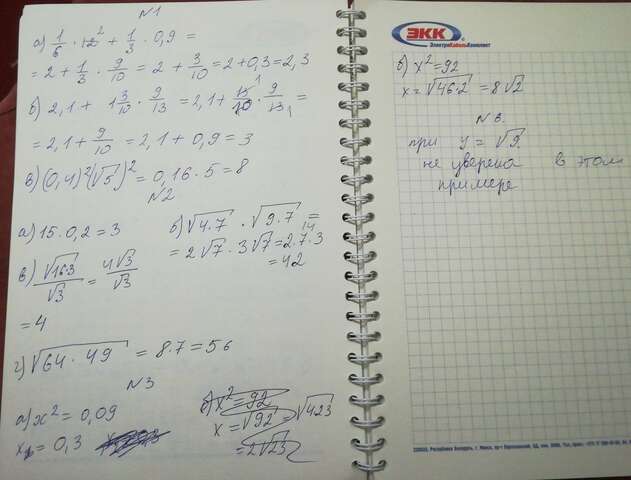 №1
а) 1/6 · 12² + 1/3 · 0,9 =
= 2 + 1/3 · 9/10 = 2 + 3/10 = 2 + 0,3 = 2,3
б) 2,1 + 1 3/10 · 9/13 = 2,1 + 13/10 · 9/13 =
= 2,1 + 9/10 = 2,1 + 0,9 = 3
в) (0,4)²(√5)² = 0,16 · 5 = 8
№2
а) 15 · 0,2 = 3
б) √4·7 · √9·7 =
= 2√7 · 3√7 = 2·7·3
= 42
в) √16·3/√3 = 4√3/√3
= 4
г) √64·49 = 8·7 = 56
№3
а) x² = 0,09
x₁ = 0,3
б) x² = 92
x = √92 = √4·23
= 2√23
ЭКК
ЭлектроКабельКомплект
б) x² = 92
x = √46·2 = 8√2
№6.
при y = √9.
не уверена в этом
примере